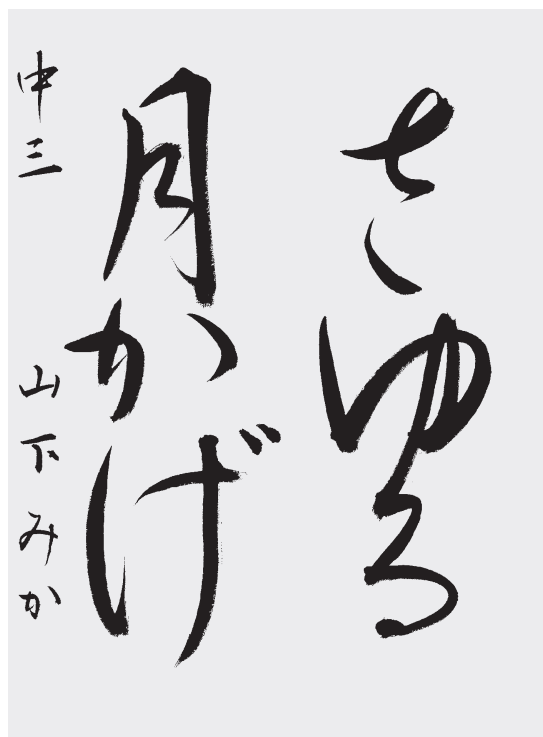 さゆる
月かげ
中三 山下みか